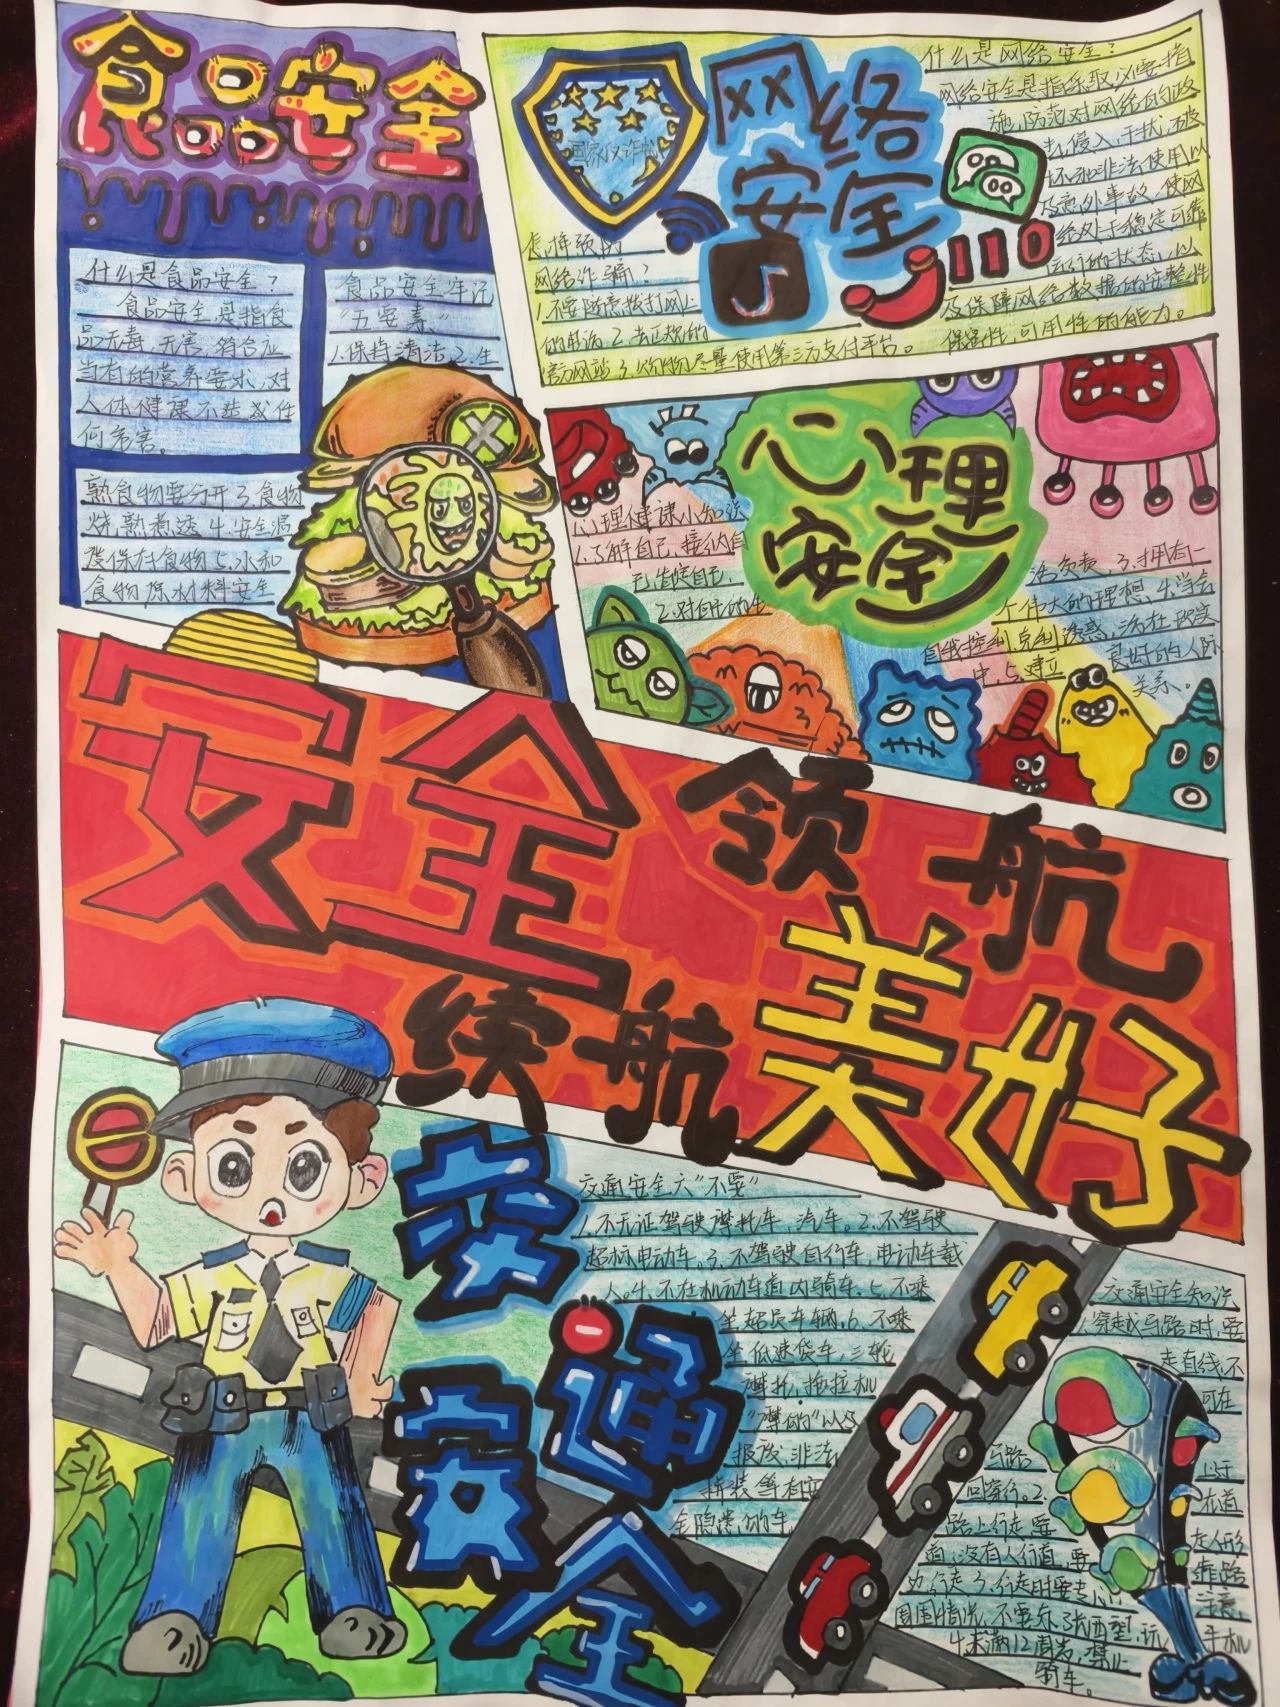 食品安全
什么是食品安全？
食品安全,是指食
品无毒、无害,符合应
当有的营养要求,对
人体健康不造成任
何危害。
食品安全牢记
"五要素"
1.保持清洁,2.生
熟食物要分开3.食物
烧熟煮透4.安全温
度保存食物5.水和
食物原材料安全
国家反诈
网络
安全
什么是网络安全？
网络安全是指采取必要措
施,防范对网络的攻
击,侵入,干扰,破
坏和非法使用以
及意外事故,使网
络处于稳定可靠
运行的状态,以
及保障网络数据的完整性
保密性,可用性的能力。
怎样预防
网络诈骗？
1.不要随意拨打网上
的电话2.去正规的
官方网站3.购物尽量使用第三方支付平台。
心理
安全
心理健康小知识
1.了解自己,接纳自
己肯定自己,
2.对自己的生
活负责 3.拥有一
个伟大的理想,4.学会
自我控制,克制诱惑,活在现实
中,5.建立良好的人际
关系、
安全领航
续航美好
交通
安全
交通安全六"不要"
1.不无证驾驶摩托车,汽车。2.不驾驶
超标电动车。3.不驾驶自行车,电动车载
人。4.不在机动车道内骑车。5.不乘
坐超员车辆,6.不乘
坐低速货车,三轮
摩托,拖拉机
"摩的"以及
报废,非法
拼装等有安
全隐患的车
交通安全知识
穿越马路时,要
走直线,不
可在
马路上迂
回穿行。2.在道
路上行走要走人行
道,没有人行道,要靠路
边行走3.行走时要专心注意
周围情况,不要东张西望,玩手机
4.未满12周岁,禁止
骑车。